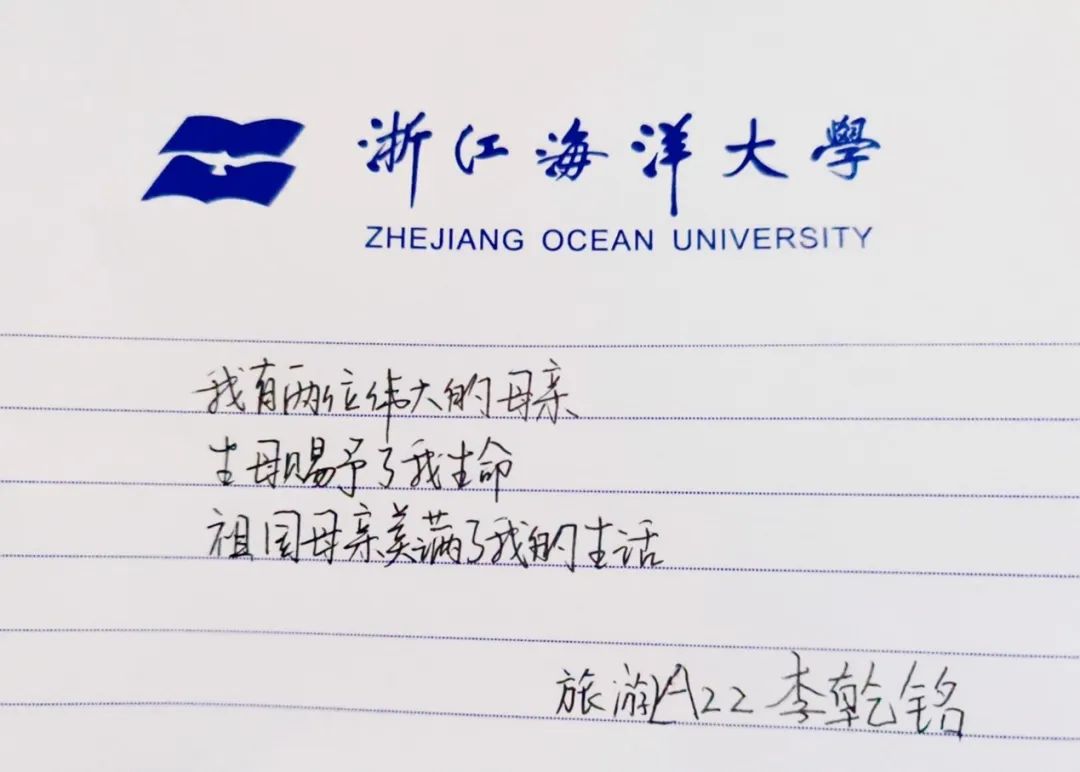 浙江海洋大學
ZHEJIANG OCEAN UNIVERSITY
我有两位伟大的母亲
生母赐予了我生命
祖国母亲美满了我的生活
旅游A22 李乾铭